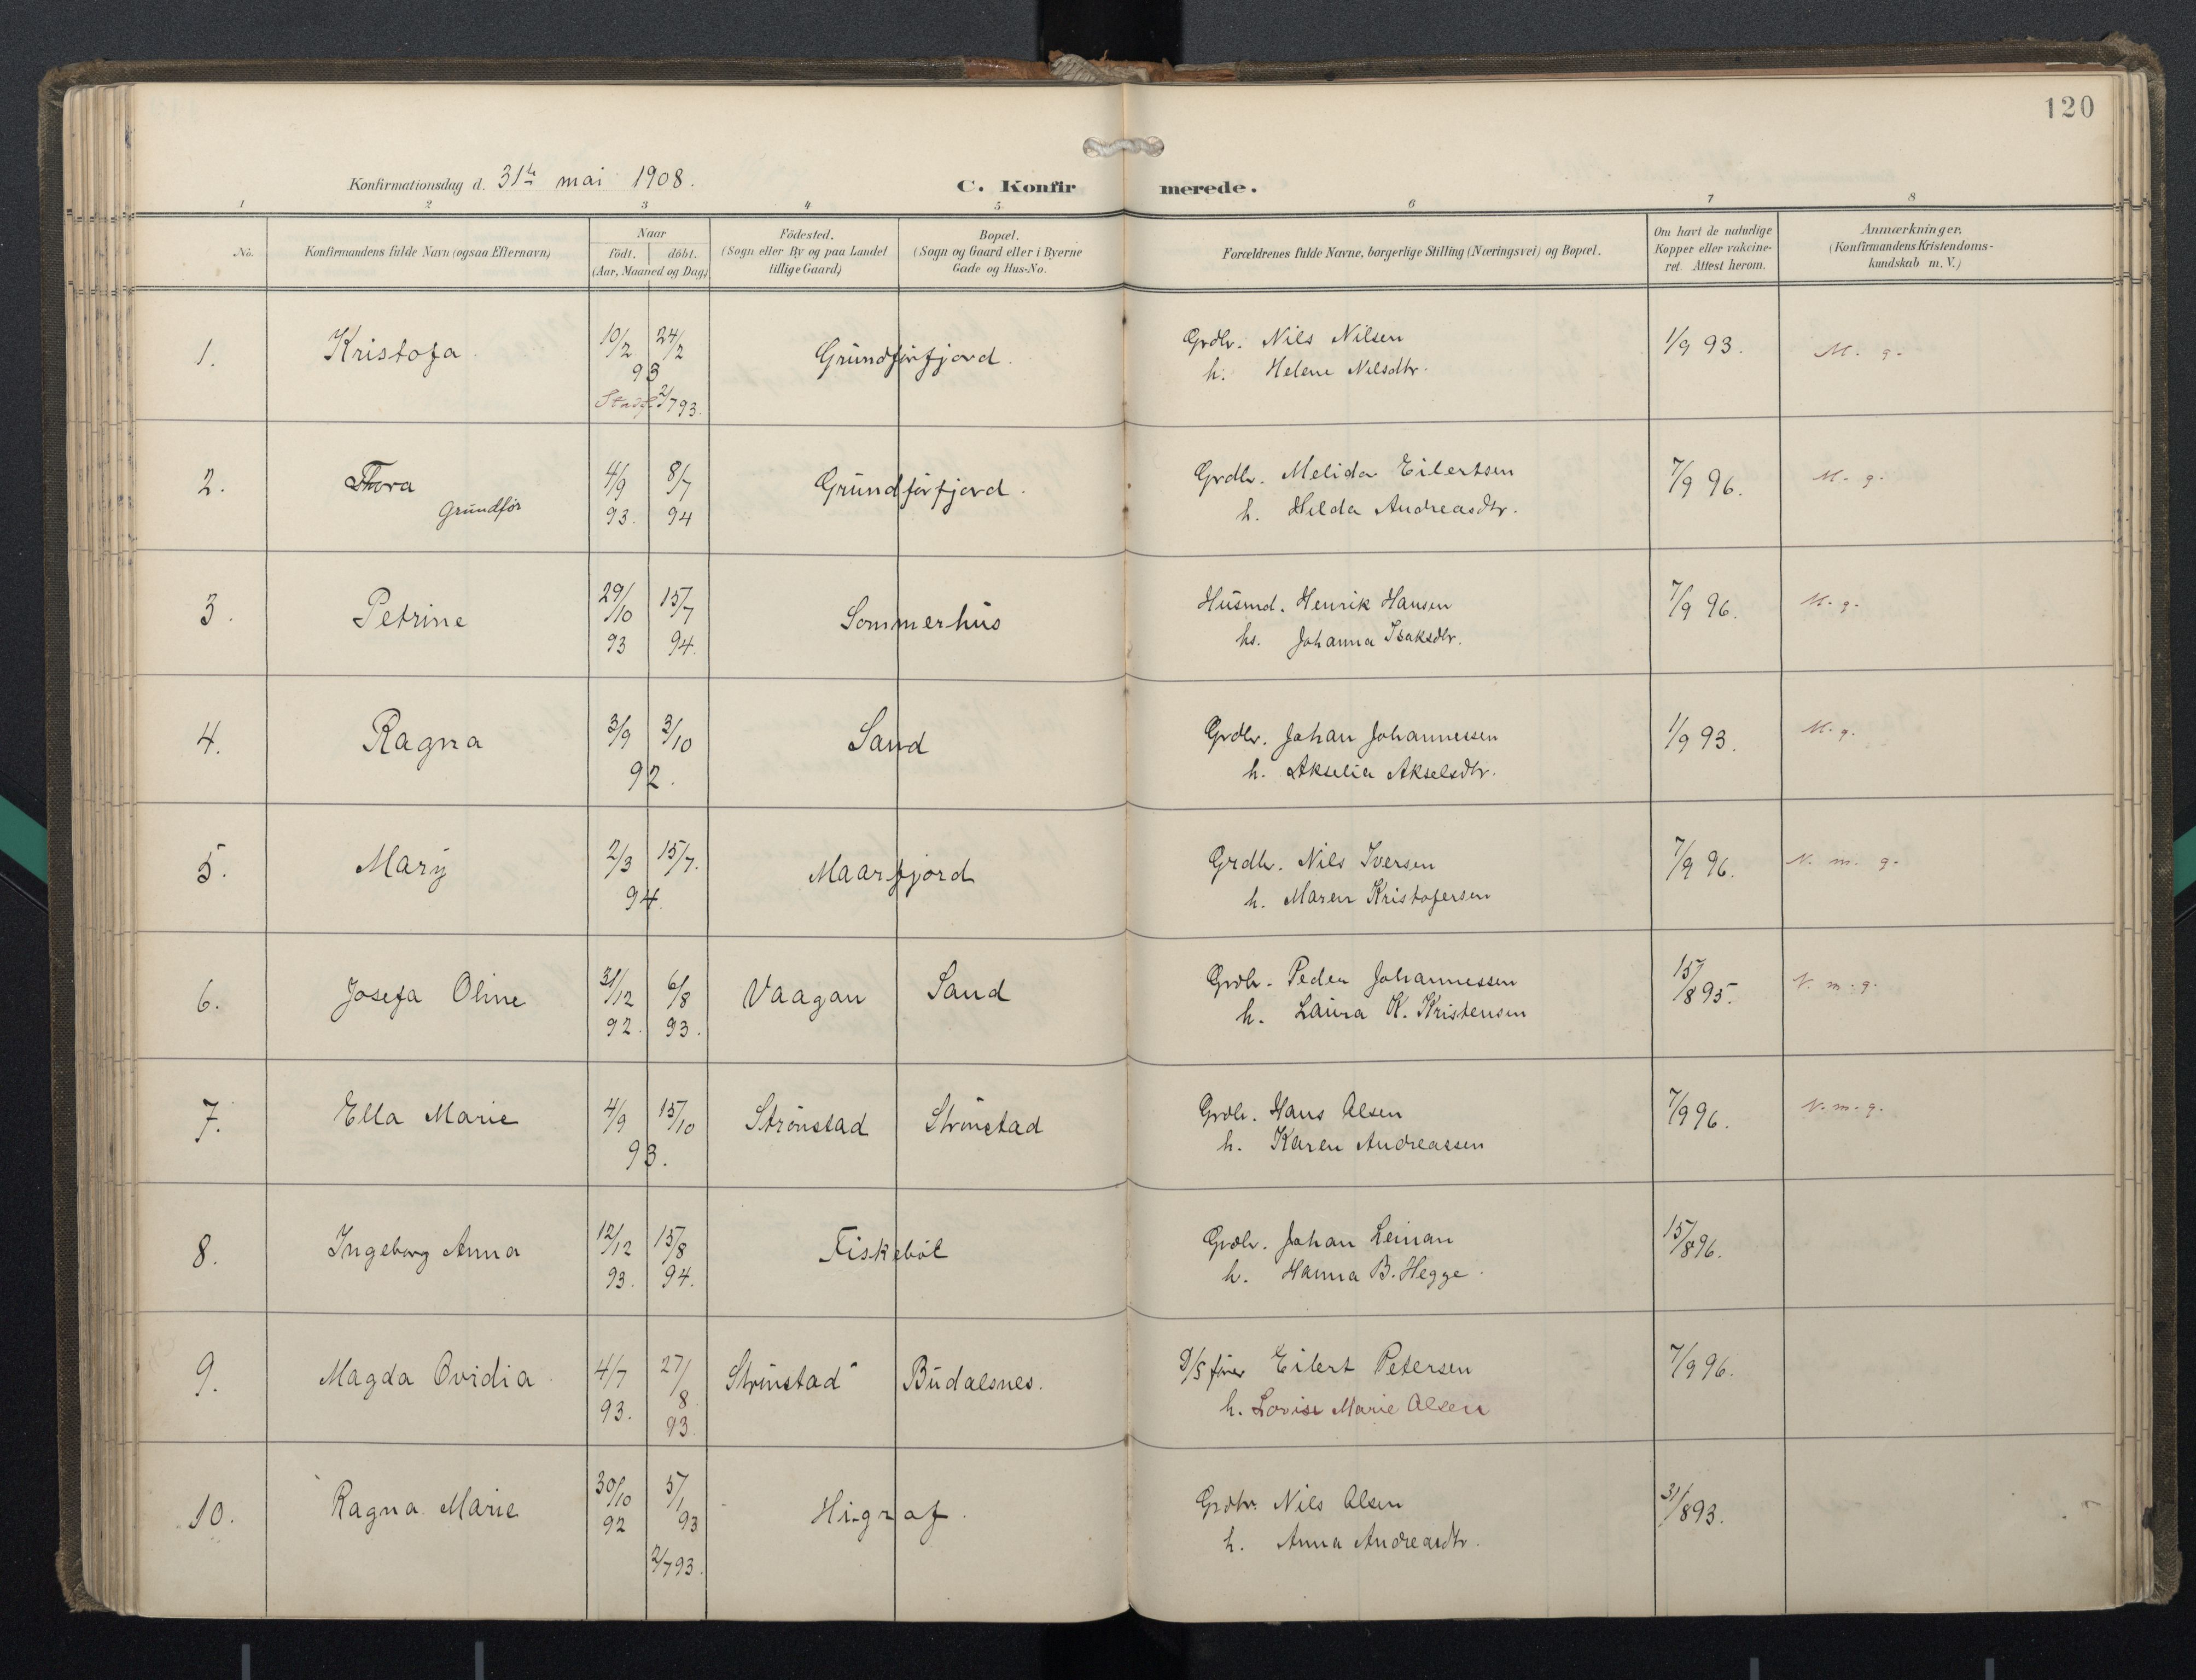 120
Konfirmationsdag d. 31te mai 1908.
C. Konfirmerede.
1 2 3 4 5 6 7 8
No.
Konfirmandens fulde Navn (ogsaa Efternavn)
Naar
födt. döbt.
(Aar, Maaned og Dag)
Födested.
(Sogn eller By og paa Landet
tillige Gaard)
Bopæl.
(Sogn og Gaard eller i Byerne
Gade og Hus-No.
Forældrenes fulde Navne, borgerlige Stilling (Næringsvei) og Bopæl.
Om havt de naturlige
Kopper eller vakcine-
ret. Attest herom.
Anmærkninger.
(Konfirmandens Kristendoms-
kundskab m. V.)
1. Kristofa 10/2 24/2 Grundförfjord. Grdbr. Nils Nilsen 1/9 93. M. g.
93 h. Helene Nilsdtr.
Stadf. 2/7 93.
2. Thora 4/9 8/7 Grundförfjord. Grdbr. Melida Eilertsen 7/9 96. M. g.
Grundför 93. 94 h. Hilda Andreasdtr.
3. Petrine 29/10 15/7 Sommerhus Husmd. Henrik Hansen 7/9 96. M. g.
93 94. hs. Johanna Isaksdtr.
4. Ragna 3/9 3/10 Sand Grdbr. Johan Johannessen 1/9 93. M. g.
92. h. Akselia Akselsdtr.
5. Mary 2/3 15/7. Maarfjord Grdbr. Nils Iversen 7/9 96. N. m. g.
94. h. Maren Kristofersen
6. Josefa Oline 31/12 6/8 Vaagan Sand Grdbr. Peder Johannessen 15/8 95. N. m. g.
92. 93. h. Laura K. Kristensen
7. Ella Marie 4/9 15/10 Strönstad Strönstad Grdbr. Hans Olsen 7/9 96. N. m. g.
93. h. Karen Andreassen
8. Ingeborg Anna 12/12 15/8 Fiskeböl Grdbr. Johan Leinan 15/8 96.
93. 94. h. Hanna B. Hegge.
9. Magda Ovidia. 4/7 27/8 Strönstad Budalsnes. D/S förer Eilert Petersen 7/9 96.
93. 93 h. Lovise Marie Olsen
10. Ragna Marie 30/10 5/1 Higraf. Grdbr. Nils Olsen 31/8 93.
92 93 h. Anna Andreasdtr.
2/7 93.